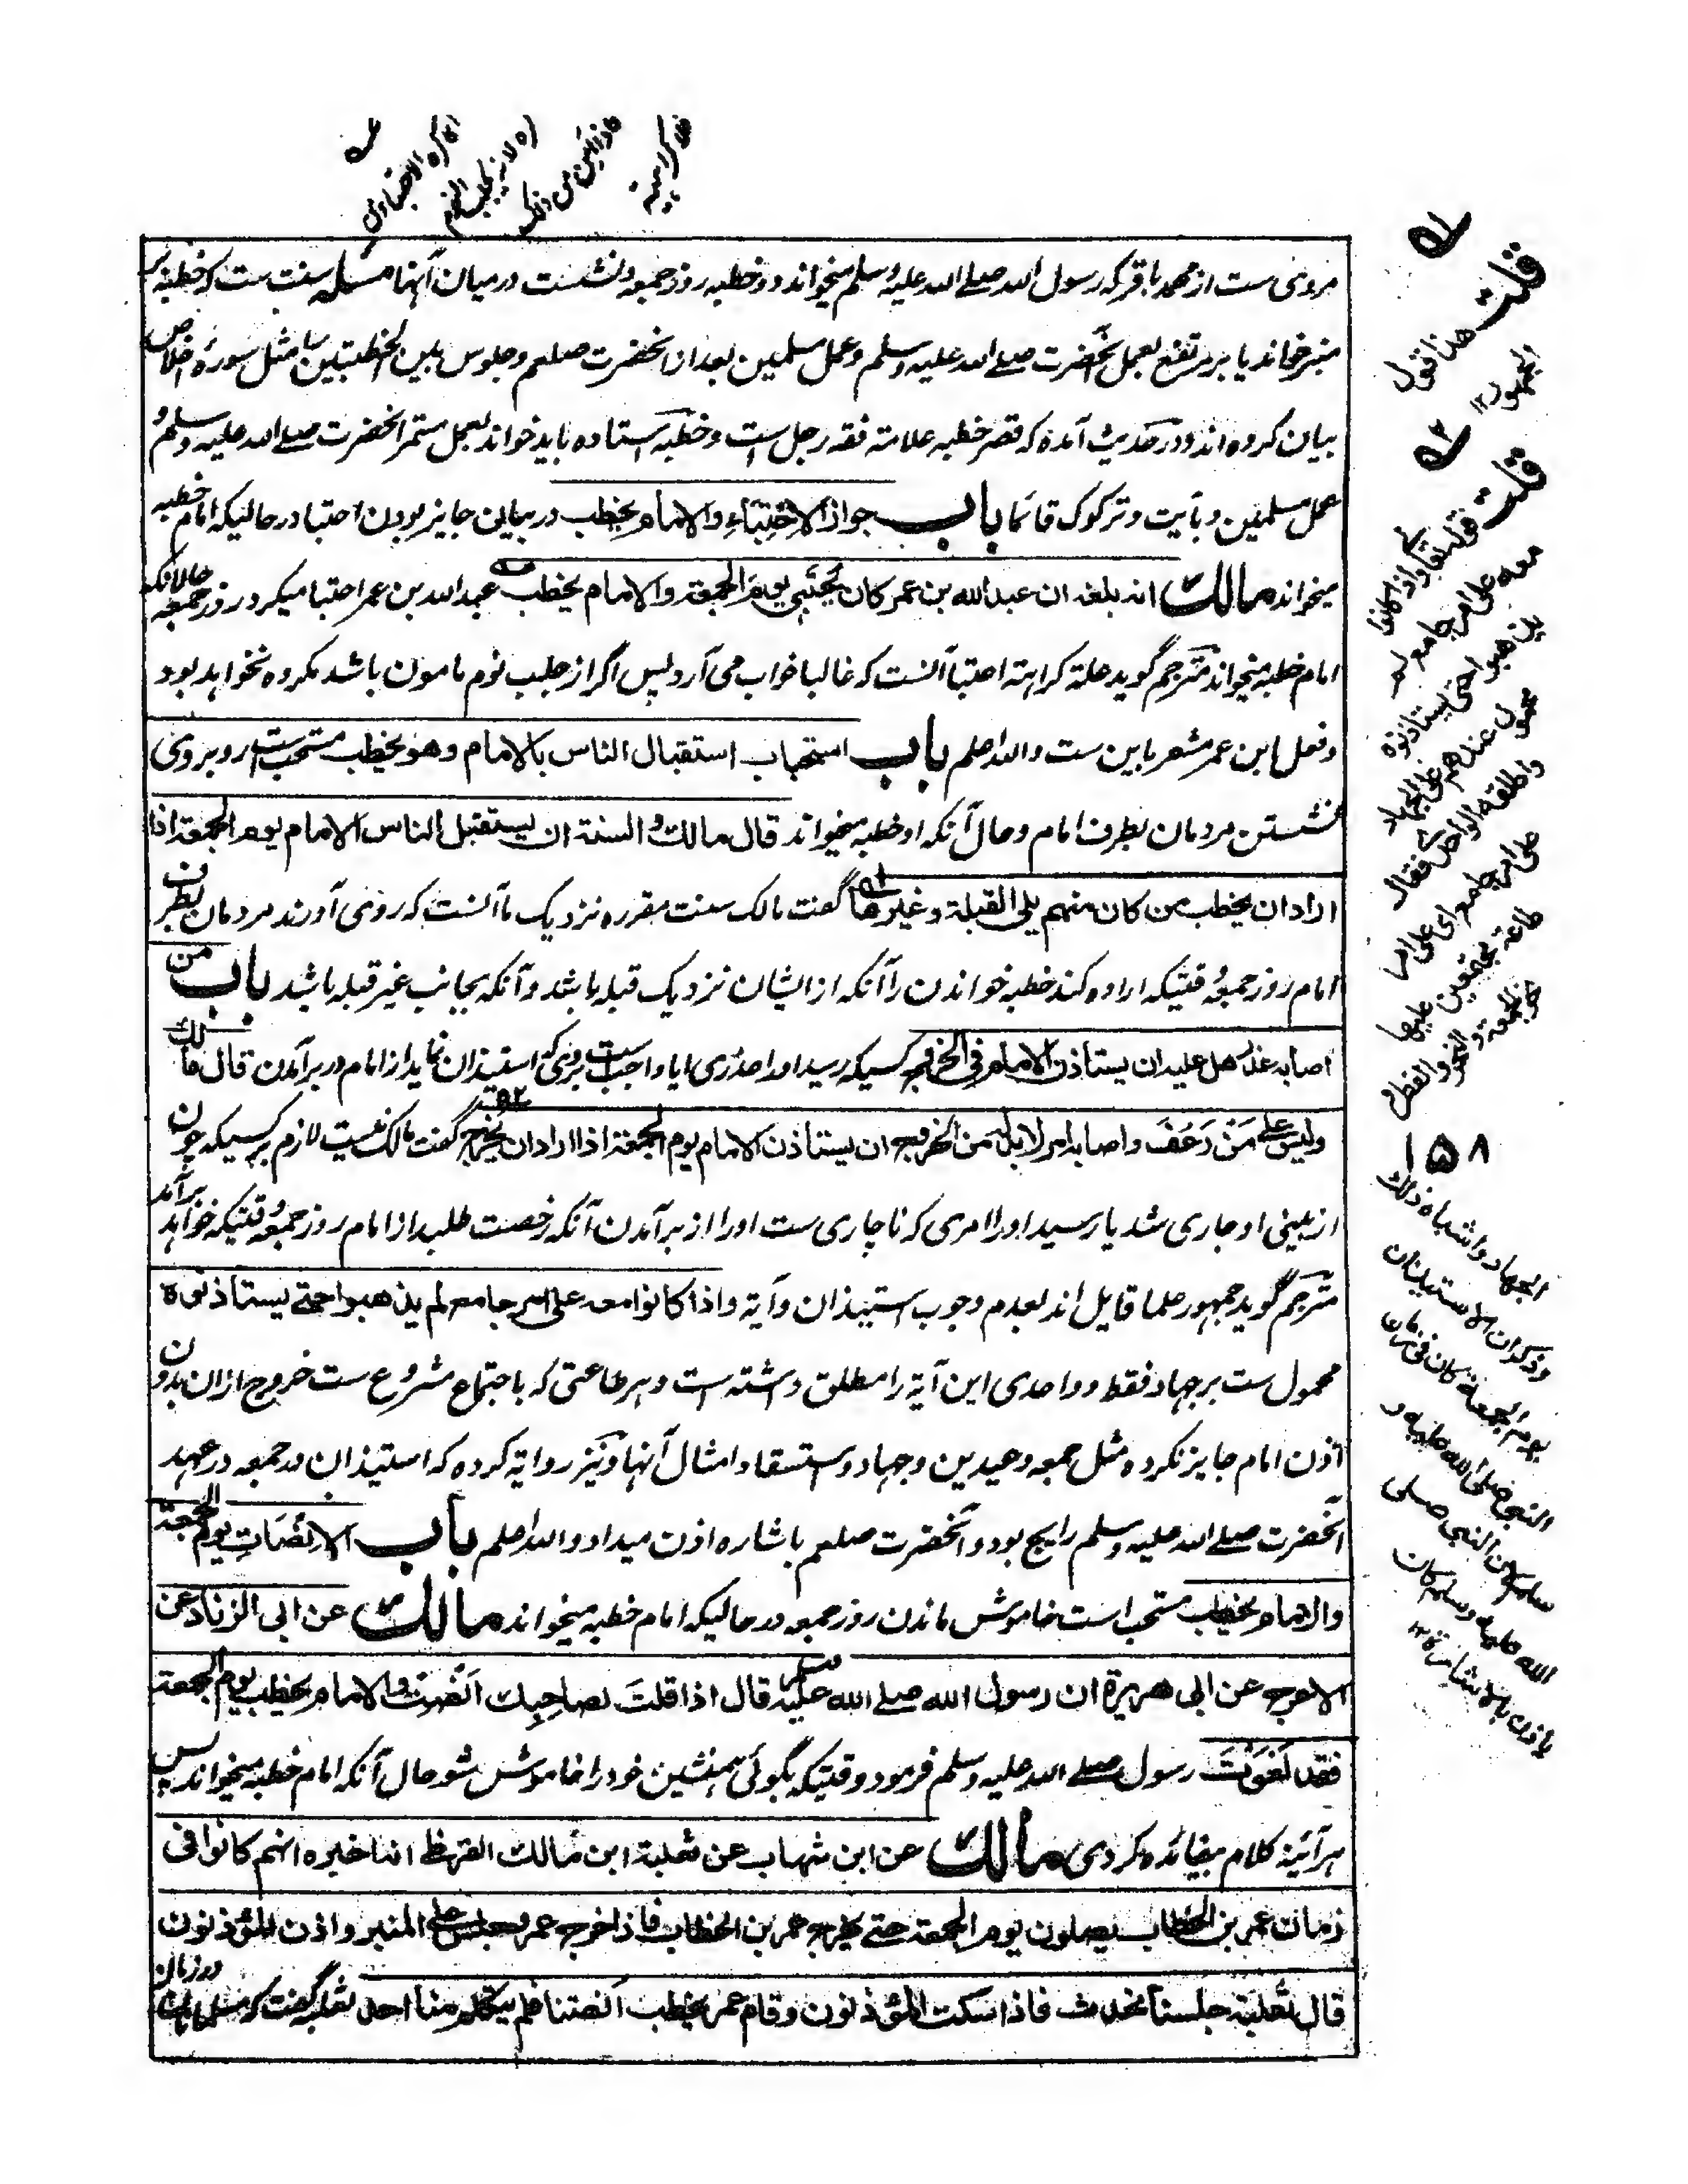 مروی ست از محمد باقر که رسول الله صلے الله علیه وسلم میخواند دو خطبه روز جمعه و نشست درمیان آنها مسئله سنت ست که خطبه بر
منبر خواند یا بر مرتفع بعمل آنحضرت صلے الله علیه وسلم وعمل مسلمین بعد از آنحضرت صلعم وجلوس بین الخطبتین را مثل سورهٔ اخلاص
بیان کرده اند و در حدیث آمده که قصر خطبه علامة فقه رجل است وخطبه استاده باید خواند بعمل مستمر آنحضرت صلے الله علیه وسلم و
عمل مسلمین و بآیت وترکوک قائما باب جواز الاحتباء والامام یخطب در بیان جایز بودن احتبا درحالیکه امام خطبه
میخواند مالك انه بلغه ان عبدالله بن عمر کان یحتبی یوم الجمعة والامام یخطب عبدالله بن عمر احتبا میکرد روز جمعه حالانکه
امام خطبه میخواند مترجم گوید علة کراهته احتبا آنست که غالبا خواب می آرد پس اگر از جلب نوم مامون باشد مکروه نخواهد بود
وفعل ابن عمر مشعر باین ست والله اعلم باب استحباب استقبال الناس بالامام وهو یخطب مستحب ست روبروی
نشستن مردمان بطرف امام وحال آنکه او خطبه میخواند قال مالك السنة ان یستقبل الناس الامام یوم الجمعة اذا
اراد ان یخطب من کان منهم یلی القبلة وغیرها گفت مالک سنت مقرره نزدیک ما آنست که روی آورند مردمان بطرف
امام روز جمعه وقتیکه اراده کند خطبه خواندن را آنکه از ایشان نزدیک قبله باشد و آنکه بجانب غیر قبله باشد باب من
اصابه عذر هل علیه ان یستاذن الامام فی الخروج کسیکه رسید اورا عذری ایا واجب ست بروی که استیذان نماید از امام در برآمدن قال مالك
ولیس علے من رعف واصابه امر لا بد له من الخروج ان یستاذن الامام یوم الجمعة اذا اراد ان یخرج گفت مالک نیست لازم بر کسیکه خون
از بینی او جاری شد یا رسید اورا امری که ناچاری ست اورا از برآمدن آنکه رخصت طلبد از امام روز جمعه وقتیکه خواهد برآمد
مترجم گوید جمهور علما قایل اند بعدم وجوب استیذان و آیة واذا کانوا معه علی امر جامع لم یذهبوا حتے یستاذنوه
محمول ست بر جهاد فقط و واحدی این آیة را مطلق داشته است و هر طاعتی که باجتماع مشروع ست خروج ازان بدون
اذن امام جایز نکرده مثل جمعه وعیدین وجهاد واستسقا وامثال آنها ونیز روایة کرده که استیذان در جمعه در عهد
آنحضرت صلے الله علیه وسلم رایج بود و آنحضرت صلعم باشاره اذن میداد والله اعلم باب الانصات یوم الجمعة
والامام یخطب مستحب است خاموش ماندن روز جمعه درحالیکه امام خطبه میخواند مالك عن ابی الزناد عن
الاعرج عن ابی هریرة ان رسول الله صلے الله علیه وسلم قال اذا قلت لصاحبك انصت والامام یخطب یوم الجمعة
فقد لغوت رسول صلے الله علیه وسلم فرمود وقتیکه بگوئی همنشین خود را خاموش شو حال آنکه امام خطبه میخواند پس
هرآئینه کلام بیفائده کردی مالك عن ابن شهاب عن ثعلبة ابن مالك القرظی انه اخبره انهم کانوا فی
زمان عمر بن الخطاب یصلون یوم الجمعة حتے یخرج عمر بن الخطاب فاذا خرج عمر وجلس علے المنبر واذن المؤذنون
قال ثعلبة جلسنا نتحدث فاذا سکت المؤذنون وقام عمر یخطب انصتنا فلم یتکلم منا احد ثعلبه گفت که مسلمانان در زمان
قلت هذا قول
الجمهور ١٢
قلت قوله تعالی واذا کانوا
معه علی امر جامع لم
یذهبوا حتی یستاذنوه
محمول عندهم علی الجهاد
واطلقه الواحدی فقال
علی امر جامع ای علی امر
طاعة یجتمعون علیها
نحو الجمعة والنحر والفطر
١٥٨
الجهاد واشباه ذلك
وذکر ان الاستیذان
یوم الجمعة کان فی زمان
النبی صلی الله علیه و
سلم وان النبی صلی
الله علیه وسلم کان
یأذن بالاشارة ١٢